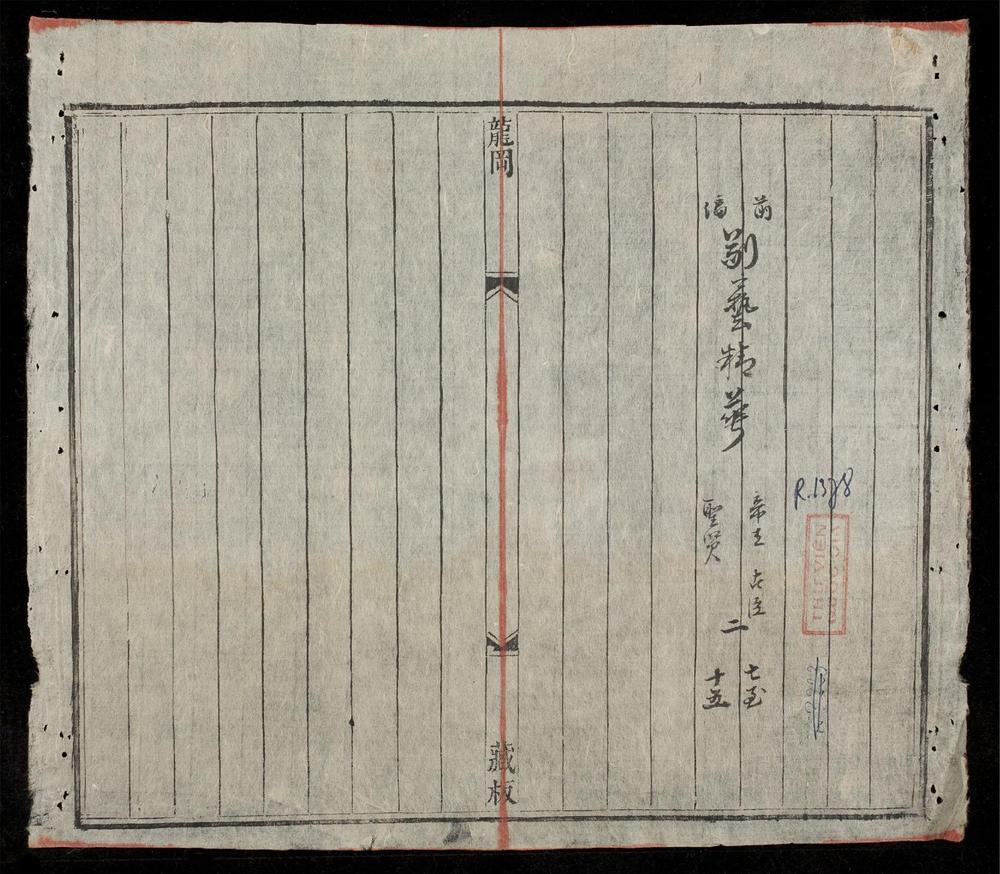 R.1378
THƯ VIỆN
QUỐC GIA
前編
藝精華
帝王 古臣
聖賢
二
七至
十五
龍岡
藏板